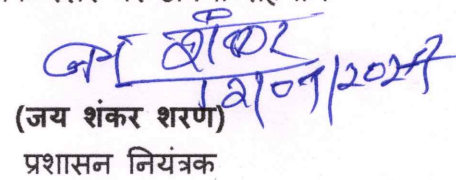 जय शंकर
12/07/2024
(जय शंकर शरण)
प्रशासन नियंत्रक